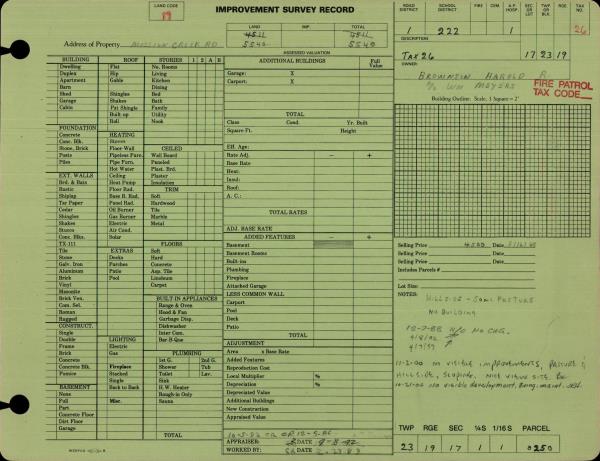 LAND CODE
19
IMPROVEMENT SURVEY RECORD
LAND IMP. TOTAL
5540 5540
Address of Property MISSION CREEK RD
ASSESSED VALUATION
ROAD DISTRICT SCHOOL DISTRICT FIRE CEM. A.P. HOSP. SEC OR LOT TWP OR BLK RGE TAX NO.
222 1 26
DESCRIPTION
TAX 26 17 23 19
OWNER:
BROWNSON HAROLD R
% WM MEYERS
FIRE PATROL
TAX CODE
Building Outline: Scale, 1 Square = 2'
BUILDING ROOF STORIES 1 2 A B
Dwelling Flat No. Rooms
Duplex Hip Living
Apartment Gable Kitchen
Barn Dining
Shed Shingles Bed
Garage Shakes Bath
Cabin Pat Shingle Family
Built up Utility
Roll Nook
FOUNDATION
Concrete HEATING
Conc. Blk. Stoves CEILED
Stone, Brick Floor Wall Wall Board
Posts Pipeless Furn. Paneled
Piles Pipe Furn. Plast. Brd.
Hot Water Plaster
EXT. WALLS Ceiling Insulation
Brd. & Bats Heat Pump TRIM
Rustic Floor Rad. Soft
Shiplap Base B. Rad. Hardwood
Tar Paper Panel Rad. Tile
Cedar Oil Burner Marble
Shingles Gas Burner Metal
Shakes Electric
Stucco Air Cond.
Conc. Blks. Solar FLOORS
TX-111 Soft
Tile EXTRAS Hard
Stone Decks Concrete
Galv. Iron Porches Asp. Tile
Aluminum Patio Linoleum
Brick Pool Carpet
Vinyl
Masonite
Brick Ven. BUILT-IN APPLIANCES
Com. Sel. Range & Oven
Roman Hood & Fan
Rugged Garbage Disp.
CONSTRUCT. Dishwasher
Single Inter Com.
Double LIGHTING Bar-B-Que
Frame Electric
Brick Gas PLUMBING
Concrete 1st G. 2nd G.
Concrete Blk. Fireplace Shower Tub
Pumice Stacked Toilet Lav.
Single Sink
BASEMENT Back to Back H.W. Heater
None Rough-in Only
Full Misc. Sauna
Part
Concrete Floor
Dirt Floor
Garage TOTAL
ADDITIONAL BUILDINGS Full Value
Garage: X
Carport: X
TOTAL
Class Cond. Yr. Built
Square Ft. Height
Eff. Age:
Rate Adj. - +
Base Rate
Heat:
Insul:
Roof:
A. C.:
TOTAL RATES
ADJ. BASE RATE
ADDED FEATURES - +
Basement
Basement Rooms
Built-ins
Plumbing
Fireplace
Attached Garage
LESS COMMON WALL
Carport
Pool
Deck
Patio
TOTAL
ADJUSTMENT
Area x Base Rate
Added Features
Reproduction Cost
Local Multiplier %
Depreciation %
Depreciated Value
Additional Buildings
New Construction
Appraised Value
APPRAISER: DATE 9-8-92
WORKED BY: DATE
Selling Price 4500 Date
Selling Price Date
Includes Parcels #
Lot Size:
NOTES: HILLSIDE - SOME PASTURE
NO BUILDING
10-7-88 N/O NO CHG.
11-2-00 NO VISIBLE IMPROVEMENTS, PASTURE &
HILLSIDE, SLOPING. NICE VIEW SITE.
10-21-06 No visible development.
TWP RGE SEC ¼S 1/16S PARCEL
23 19 17 1 1 0250